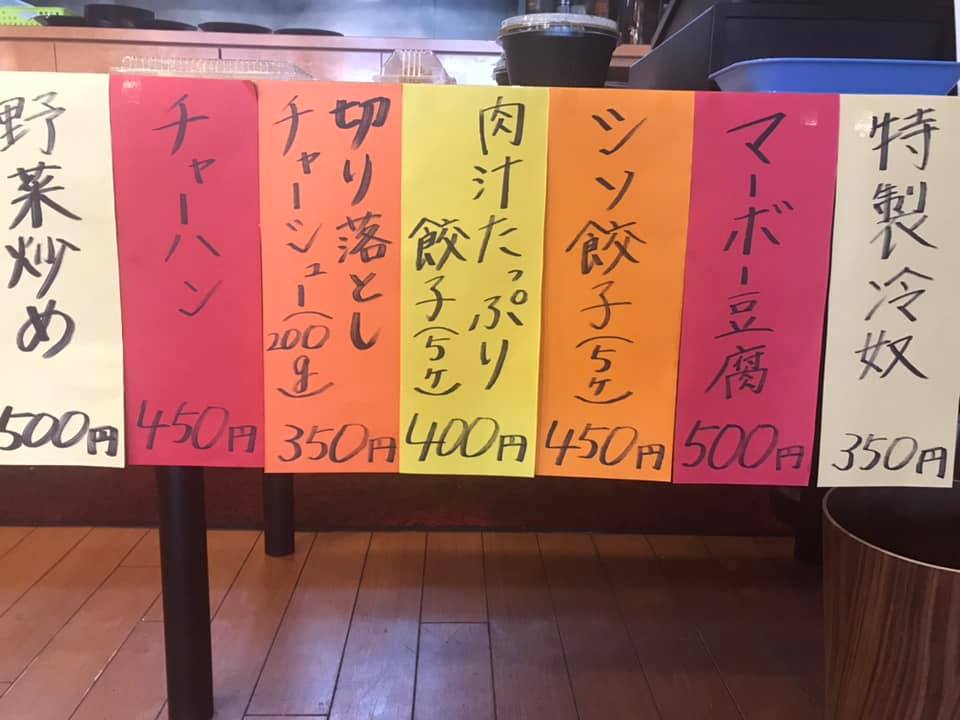 特製冷奴
350円
マーボー豆腐
500円
シソ餃子(5ヶ)
450円
肉汁たっぷり
餃子(5ケ)
400円
切り落とし
チャーシュー(200g)
350円
チャーハン
450円
野菜炒め
500円